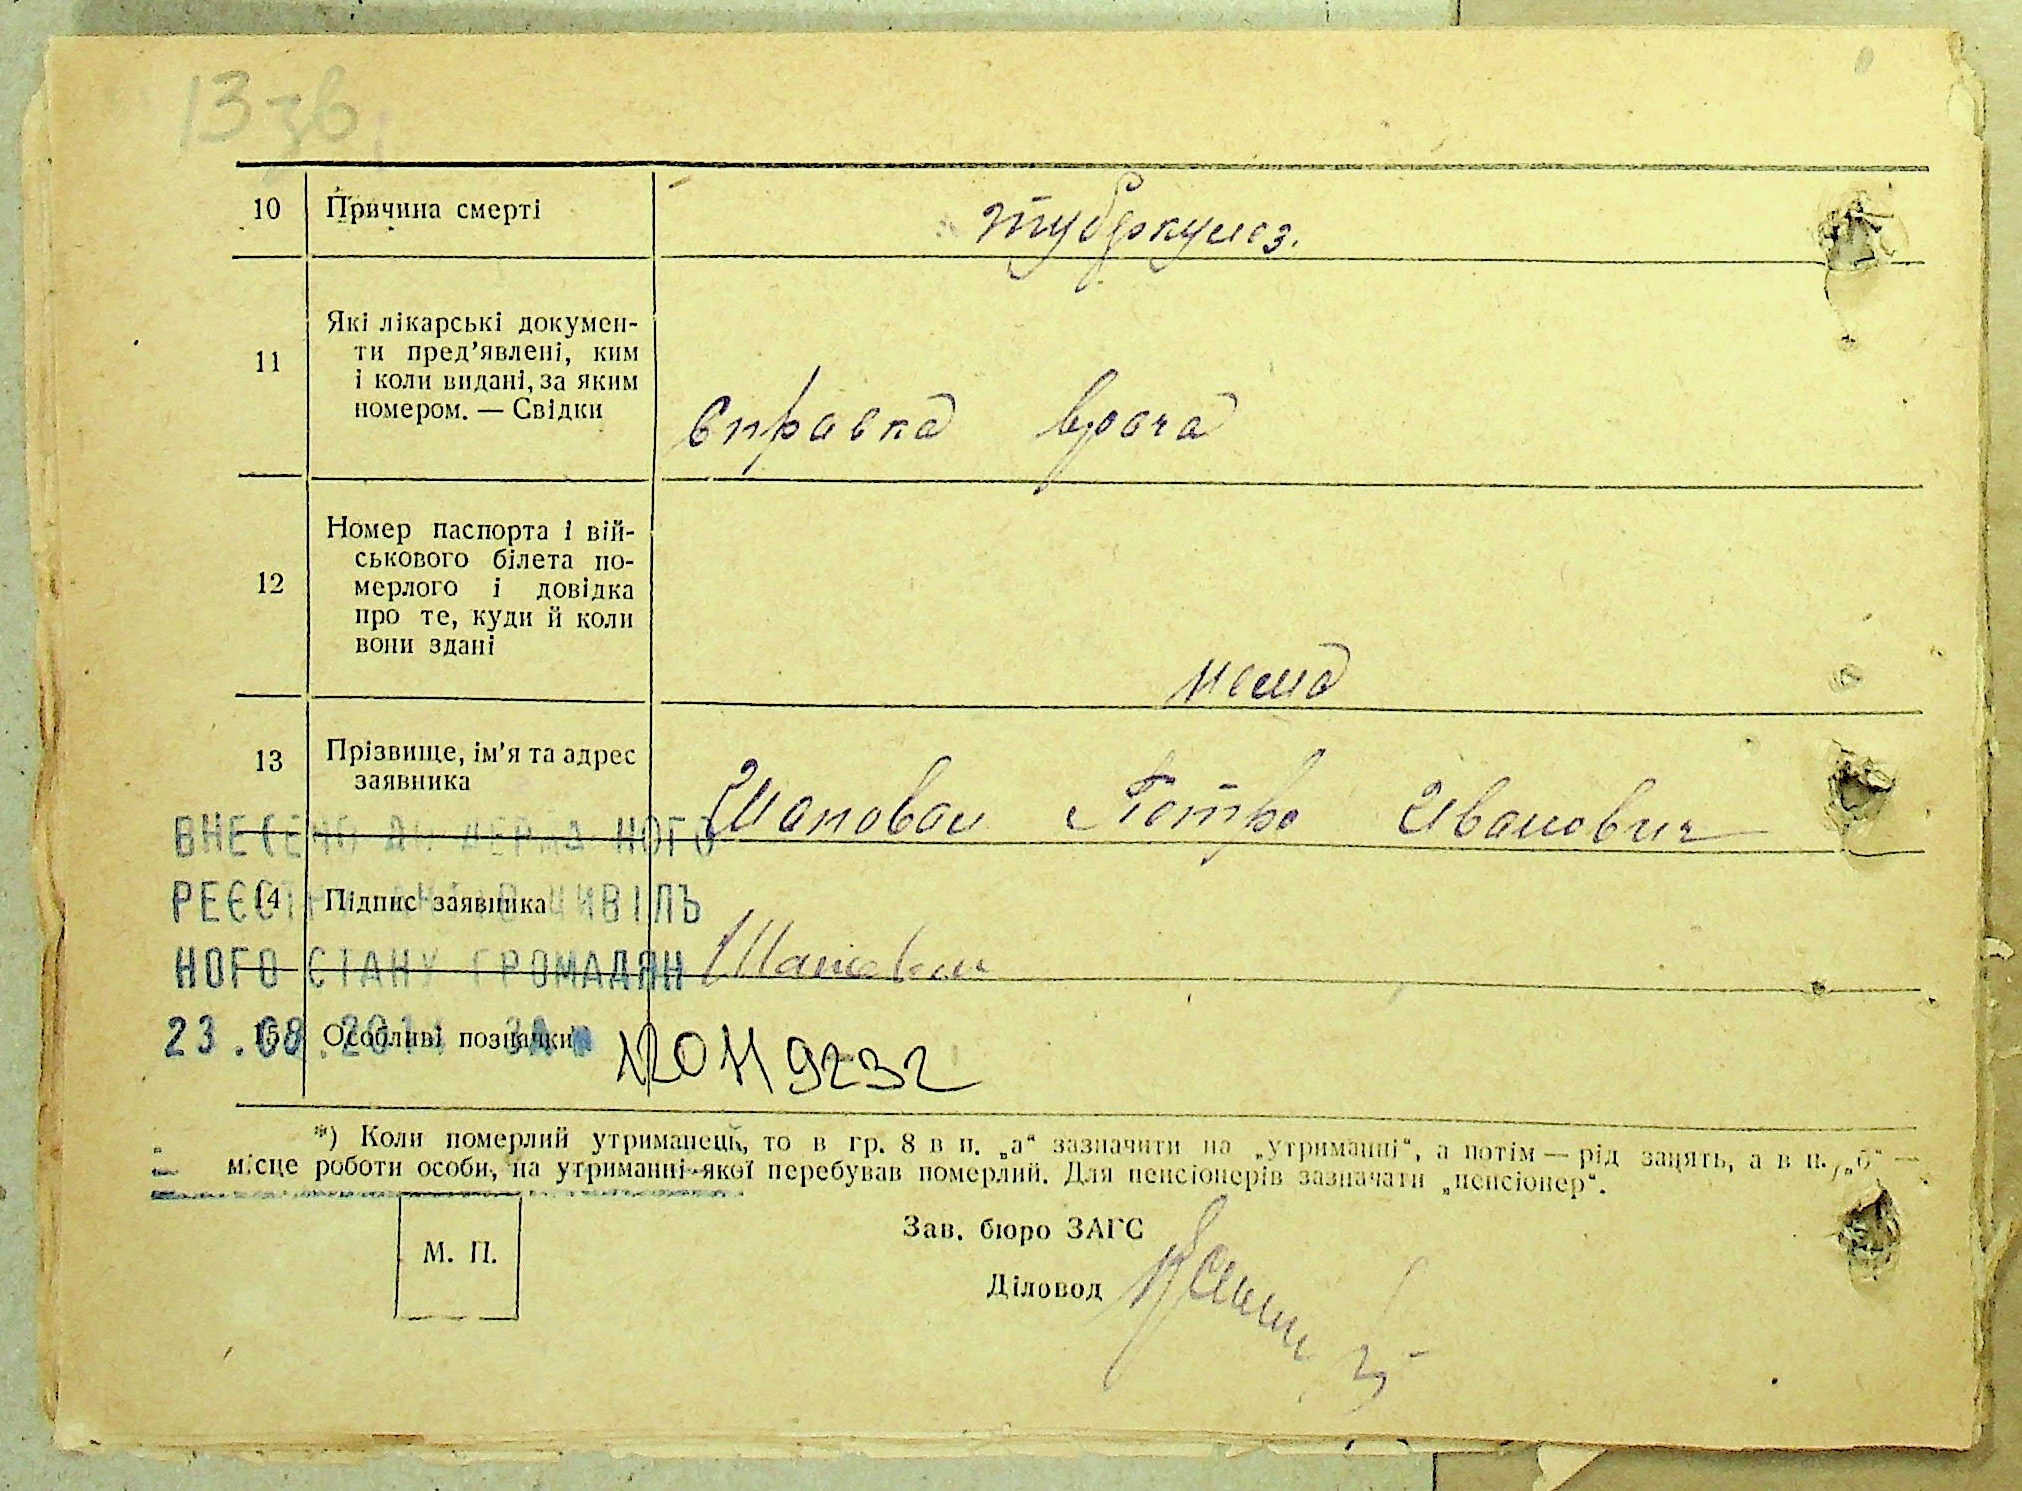 13 зв.
10 Причина смерті туберкулез.
11 Які лікарські докумен-
ти пред'явлені, ким
і коли видані, за яким
номером. — Свідки
справка врача
12 Номер паспорта і вій-
ськового білета по-
мерлого і довідка
про те, куди й коли
вони здані
нема
13 Прізвище, ім'я та адрес
заявника
Шаповал Петро Иванович
ВНЕСЕНО ДО ДЕРЖАВНОГО
РЕЄСТРУ АКТІВ ЦИВІЛЬ
14 Підпис заявника
Шаповал
НОГО СТАНУ ГРОМАДЯН
23.08.201 ЗА №
15 Особливі позначки
9232
*) Коли померлий утриманець, то в гр. 8 в п. „а“ зазначити на „утриманні“, а потім — рід занять, а в п. „б“ —
місце роботи особи, на утриманні якої перебував померлий. Для пенсіонерів зазначати „пенсіонер“.
М. П.
Зав. бюро ЗАГС
Діловод